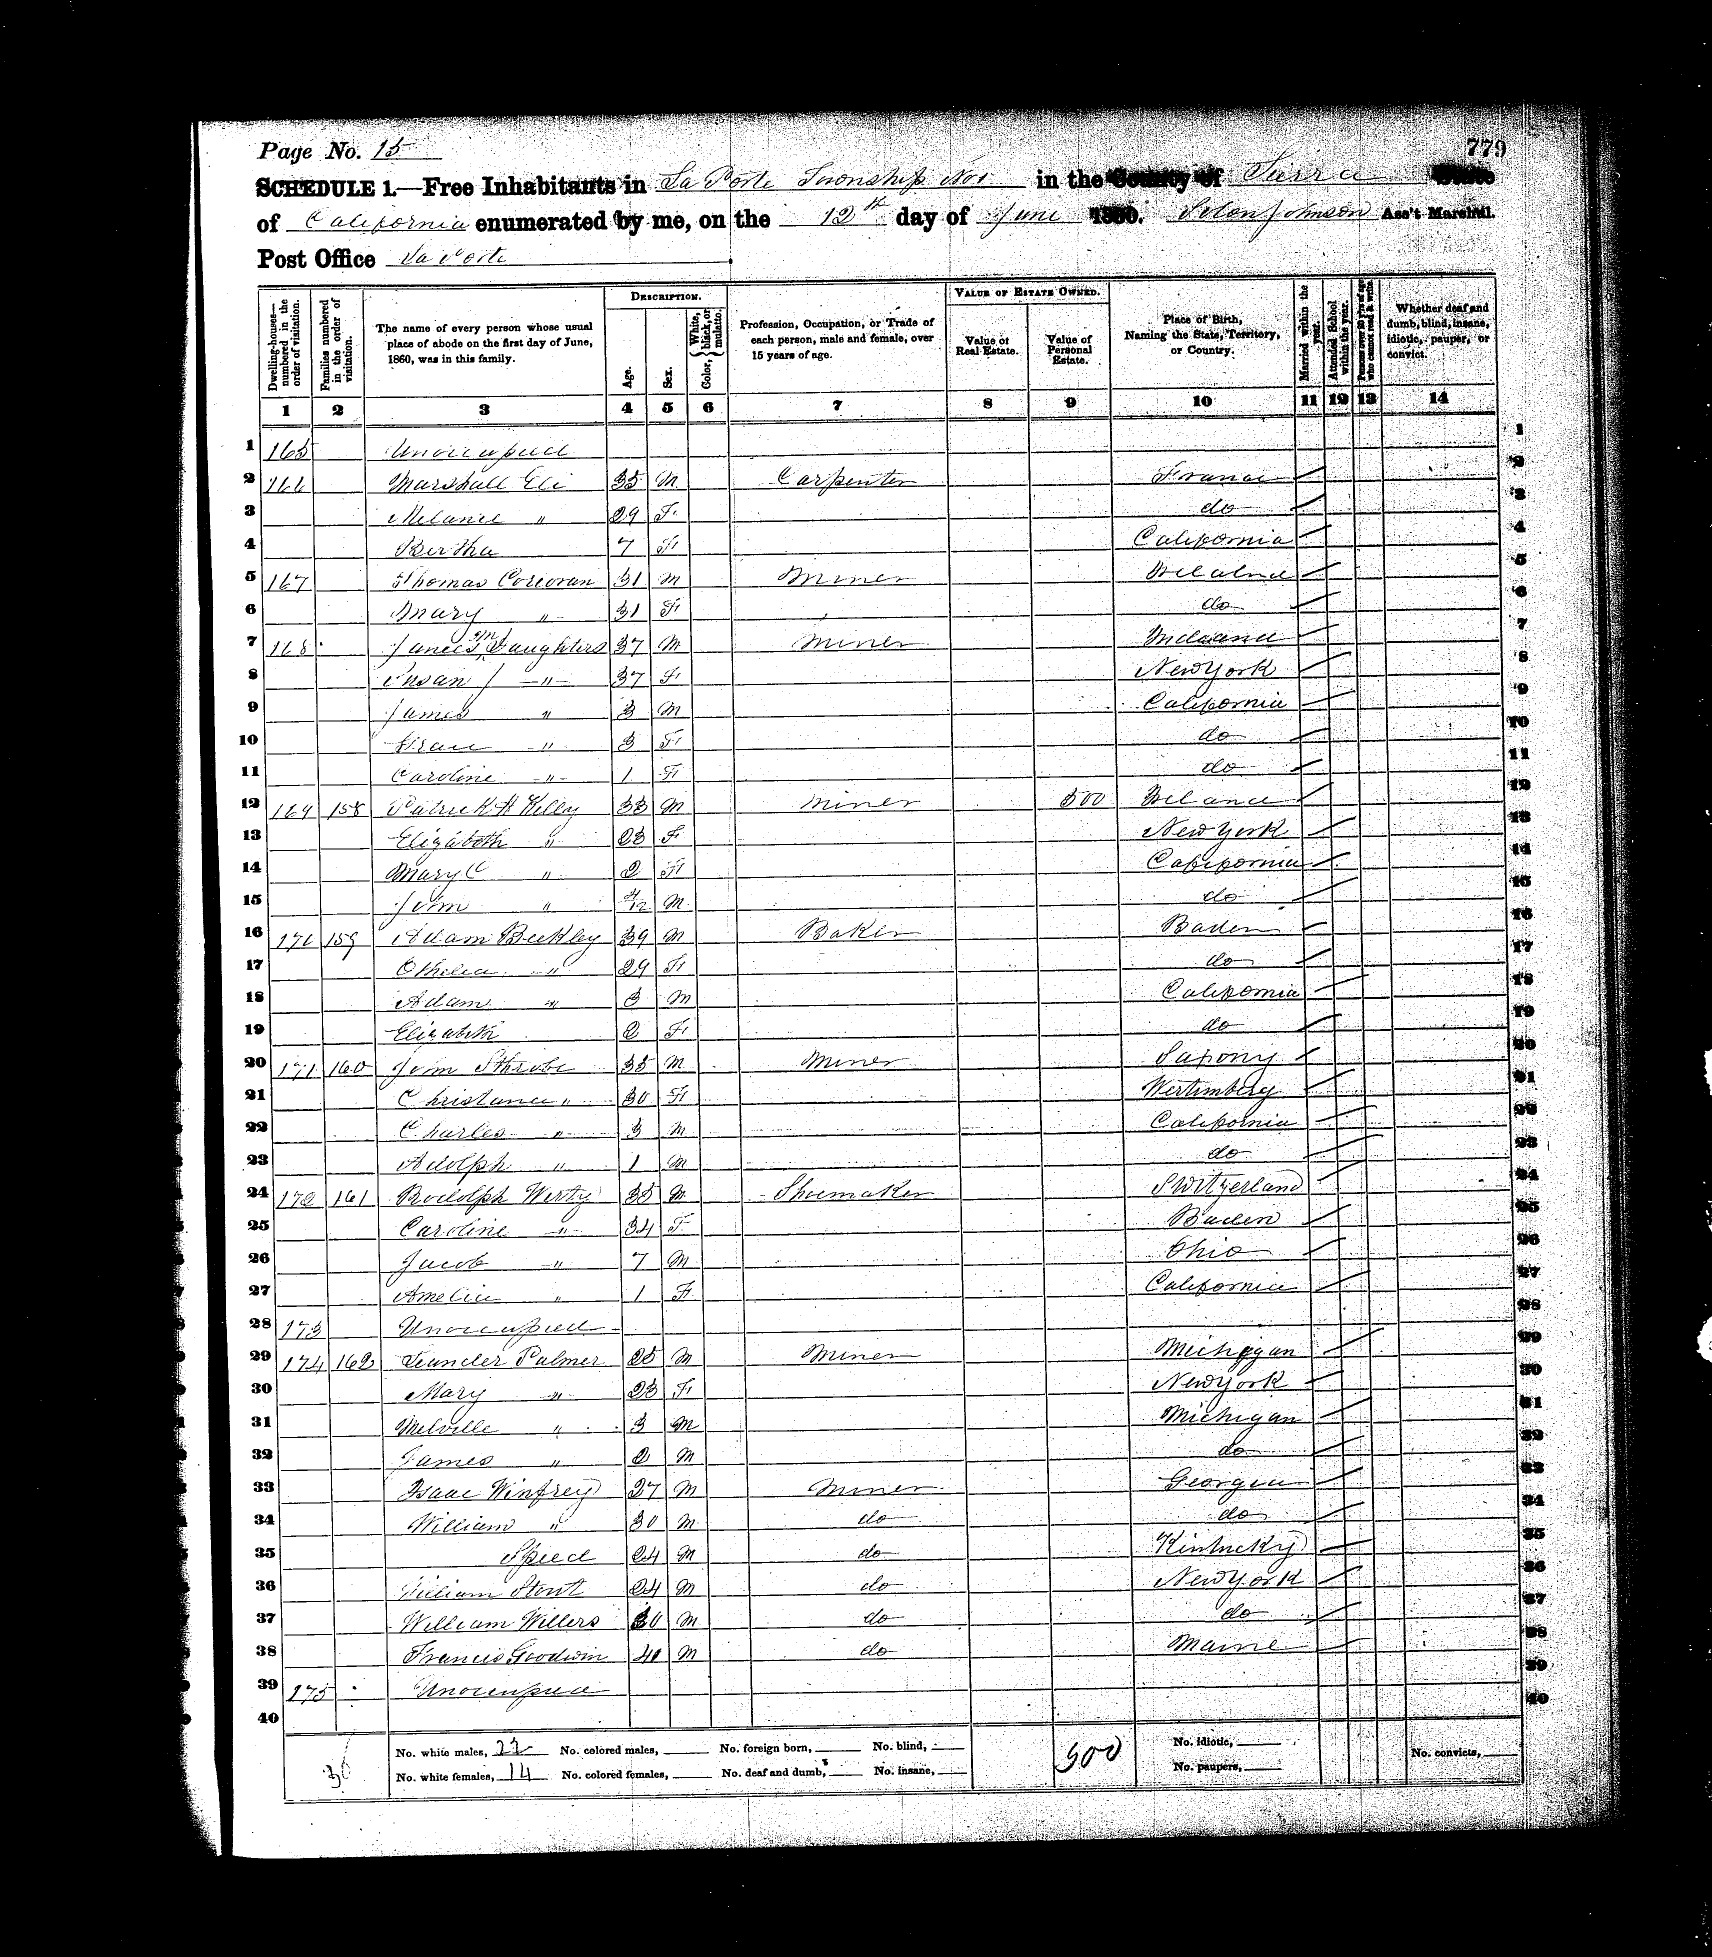 Page No. 15
779
SCHEDULE 1.—Free Inhabitants in La Porte Township No 1 in the County of Sierra State
of California enumerated by me, on the 12th day of June 1860. Solon Johnson Ass't Marshal.
Post Office La Porte
Dwelling-houses—numbered in the order of visitation.
Families numbered in the order of visitation.
The name of every person whose usual place of abode on the first day of June, 1860, was in this family.
DESCRIPTION.
Age.
Sex.
Color, {White, black, or mulatto.
Profession, Occupation, or Trade of each person, male and female, over 15 years of age.
VALUE OF ESTATE OWNED.
Value of Real Estate.
Value of Personal Estate.
Place of Birth, Naming the State, Territory, or Country.
Married within the year.
Attended School within the year.
Persons over 20 y'rs of age who cannot read & write.
Whether deaf and dumb, blind, insane, idiotic, pauper, or convict.
1 2 3 4 5 6 7 8 9 10 11 12 13 14
1 165 Unoccupied 1
2 166 Marshall Eli 35 M Carpenter France 2
3 Melanie " 29 F do 3
4 Bertha 7 F California 4
5 167 Thomas Corcoran 31 M Miner Irelalnd 5
6 Mary " 31 F do 6
7 168 James Daughters 37 M Miner Indiana 7
8 Susan " 37 F New York 8
9 James " 3 M California 9
10 " 3 F do 10
11 Caroline " 1 F do 11
12 169 158 Patrick H Kelley 33 M Miner 500 Ireland 12
13 Elizabeth " 23 F New York 13
14 Mary C " 2 F California 14
15 John " /12 M do 15
16 170 159 Adam Beckley 39 M Baker Baden 16
17 Othelea " 29 F do 17
18 Adam " 3 M California 18
19 Elizabeth 2 F do 19
20 171 160 John Sthrobe 35 M Miner Saxony 20
21 Christance " 30 F Wertimberg 21
22 Charles " 3 M California 22
23 Adolph " 1 M do 23
24 172 161 Rodolph Werty 35 M Shoemaker Switzerland 24
25 Caroline " 34 F Baden 25
26 Jacob " 7 M Ohio 26
27 Amelia " 1 F California 27
28 173 Unoccupied 28
29 174 162 Leander Palmer 25 M Miner Michigan 29
30 Mary " 23 F New York 30
31 Melville " 3 M Michigan 31
32 James " 2 M do 32
33 Isaac Winfrey 27 M Miner Georgia 33
34 William " 30 M do do 34
35 Speed 24 M do Kintucky 35
36 William Stout 24 M do New York 36
37 William Willers 30 M do do 37
38 Francis Goodwin 40 M do Maine 38
39 175 Unoccupied 39
40 40
36
No. white males, 22 No. colored males, No. foreign born, No. blind, 500 No. idiotic, No. convicts,
No. white females, 14 No. colored females, No. deaf and dumb, No. insane, No. paupers,